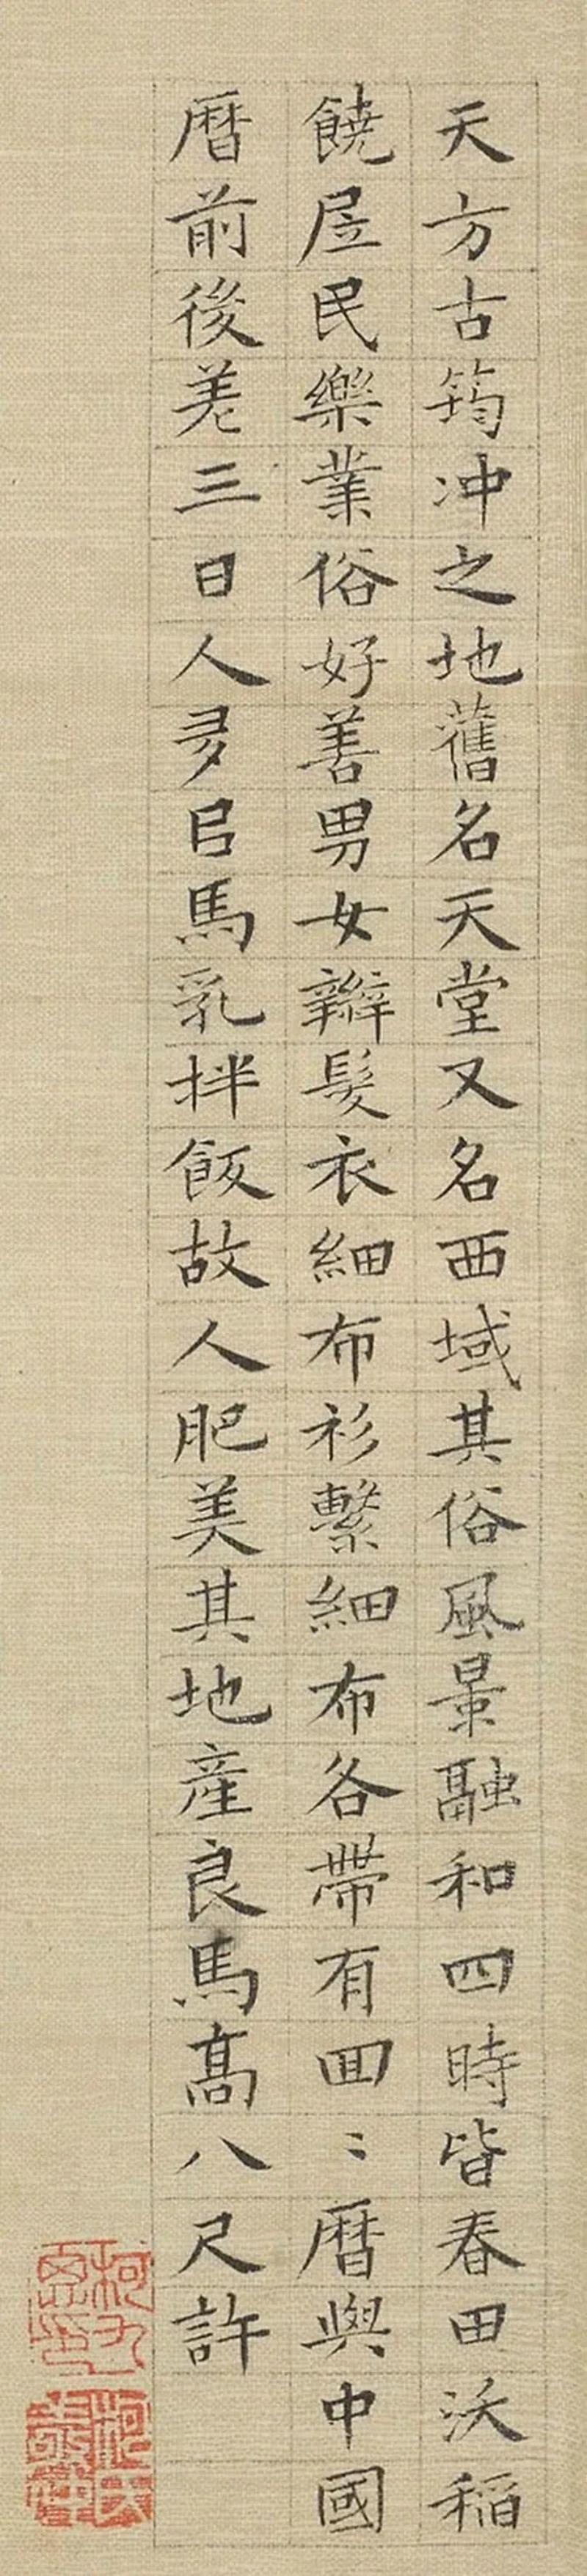 天方古筠冲之地舊名天堂又名西域其俗風景融和四時皆春田沃稲
饒居民樂業俗好善男女辮髮衣細布衫繫細布各帶有囬〻曆與中國
曆前後差三日人多㠯馬乳拌飯故人肥美其地産良馬高八尺許
柯九思印